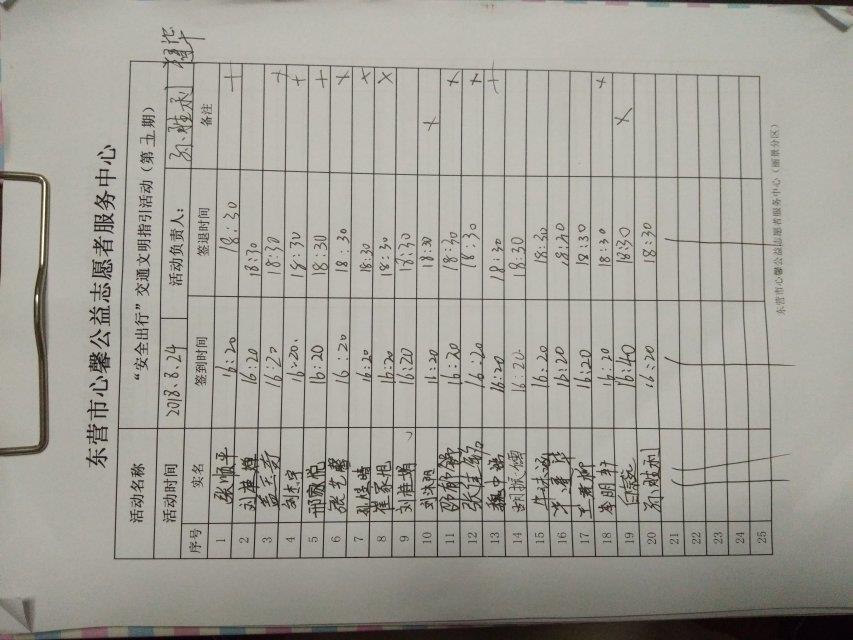 东营市心馨公益志愿者服务中心
活动名称 “安全出行”交通文明指引活动(第五期)
活动时间 2018.8.24 活动负责人: 孙胜利
序号 实名 签到时间 签退时间 备注
1 张顺平 16:20 18:30 +
2 16:20 18:30
3 16:20 18:30 +
4 16:20. 18:30 +
5 邢家悦 16:20 18:30 +
6 张艺馨 16:20 18:30 ×
7 16:20 18:30 ×
8 崔家旭 16:20 18:30 ×
9 16:20 18:30
10 刘沐阳 16:20 18:30 ×
11 16:20 18:30 ×
12 16:20 18:30 +
13 16:20 18:30 +
14 16:20 18:30
15 16:20 18:30
16 16:20 18:30
17 16:20 18:30
18 李明轩 16:20 18:30 +
19 16:40 18:30 ×
20 孙胜利 16:20 18:30
21
22
23
24
25
东营市心馨公益志愿者服务中心(丽景分区)